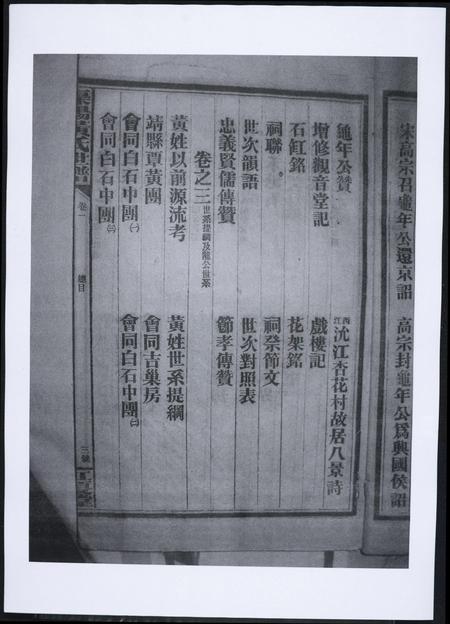 宋高宗召龜年公還京詔 高宗封龜年公爲興國侯詔
龜年公贊 江西沈江杏花村故居八景詩
增修觀音堂記 戲樓記
石缸銘 花架銘
祠聯 祠祭節文
世次韻語 世次對照表
忠義賢儒傳贊 節孝傳贊
卷之三 世系提綱及龍公世系
黃姓以前源流考 黃姓世系提綱
靖縣覃黃團 會同吉巢房
會同白石中團㈠ 會同白石中團㈡
會同白石中團㈢
黃氏世譜 卷一 總目 三號